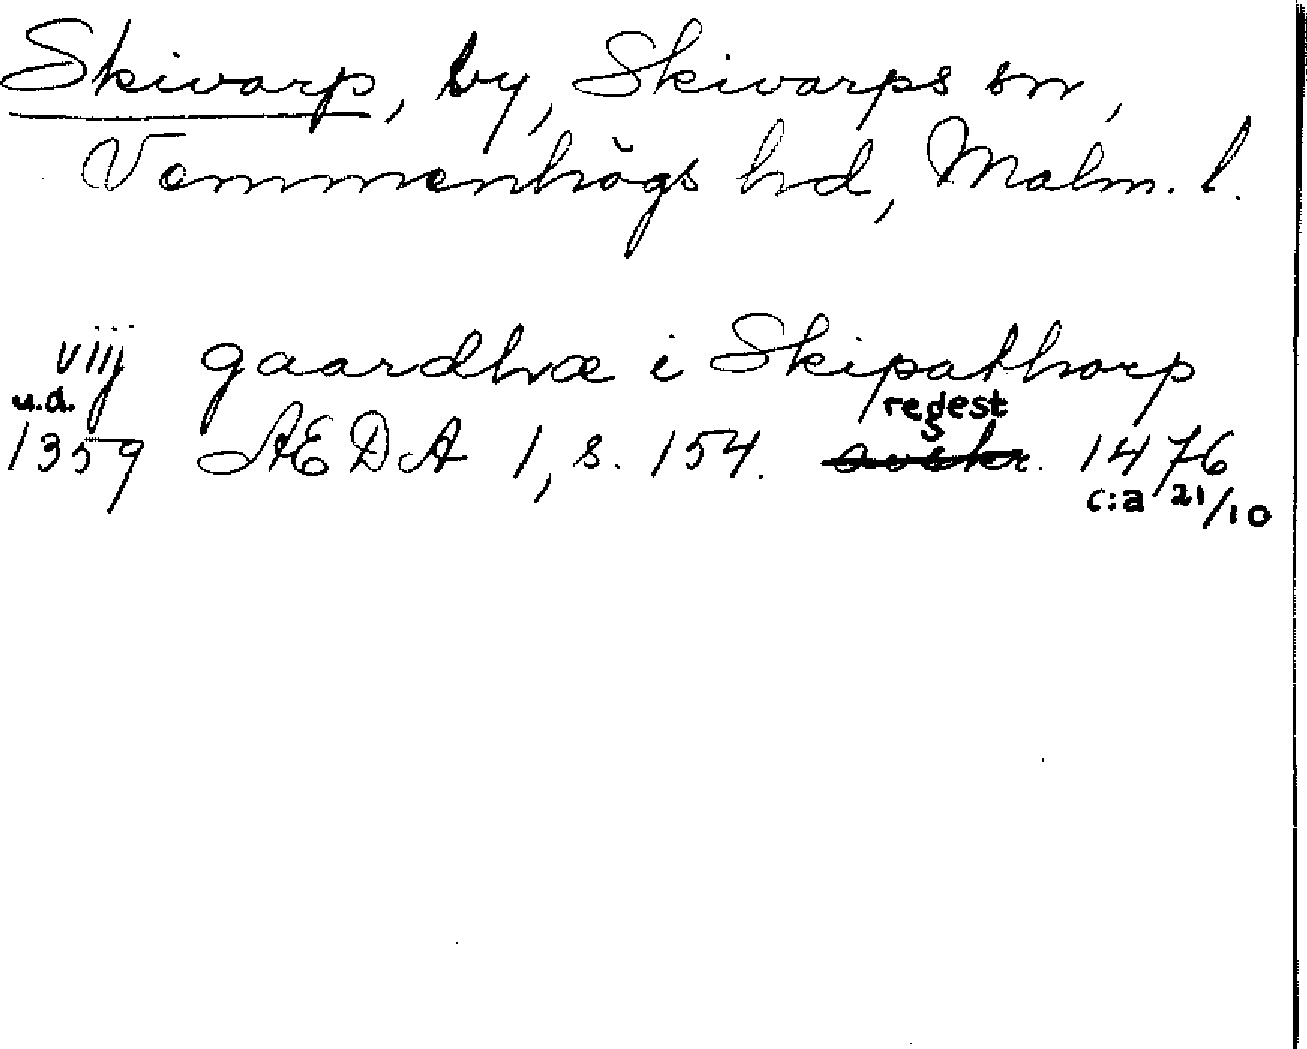 Skivarp, by, Skivarps sn,
Vemmenhögs hd, Malm. l.
viij gaardhæ i Skipathorp
u.d. regest
1359 AEDA 1, s. 154. avskr. 1476
c:a 21/10